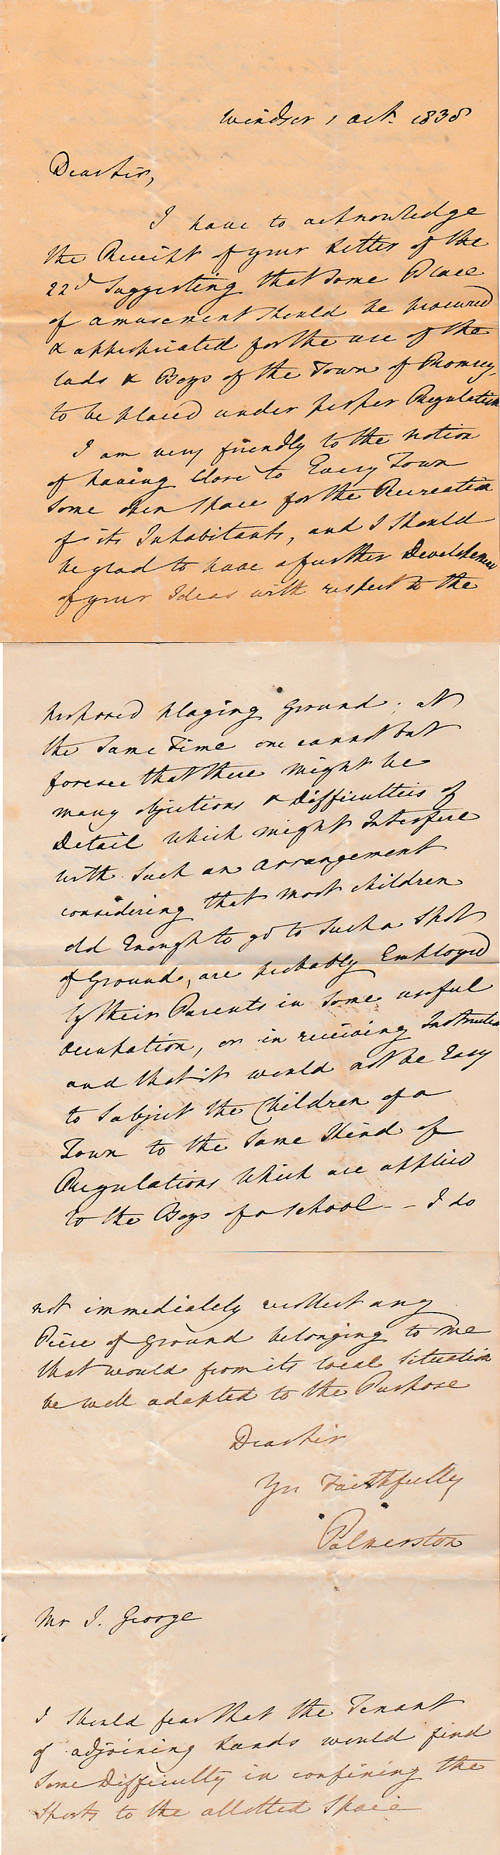 Windsor 1 Oct. 1838
Dear Sir,
I have to acknowledge
the Receipt of your Letter of the
22d Suggesting that some Place
of amusement should be procured
& appropriated for the use of the
lads & Boys of the Town of Romsey,
to be placed under proper Regulation
I am very friendly to the notion
of having close to Every Town
some open space for the Recreation
of its Inhabitants, and I should
be glad to have a further Developemen
of your Ideas with respect to the
proposed playing Ground; at
the same Time one cannot but
foresee that there might be
many objections & Difficulties of
Detail which might Interfere
with such an arrangement
considering that most children
old Enough to go to such a spot
of Ground, are probably Employed
by their Parents in some useful
occupation, or in receiving Instruction
and that it would not be Easy
to subject the Children of a
Town to the same Kind of
Regulations which are applied
to the Boys of a school -- I do
not immediately recollect any
Piece of Ground belonging to me
that would from its local situation
be well adapted to the Purpose
Dear Sir
Yrs Faithfully
Palmerston
Mr J. George
I should fear that the Tenant
of adjoining Lands would find
some Difficulty in confining the
Sports to the allotted space